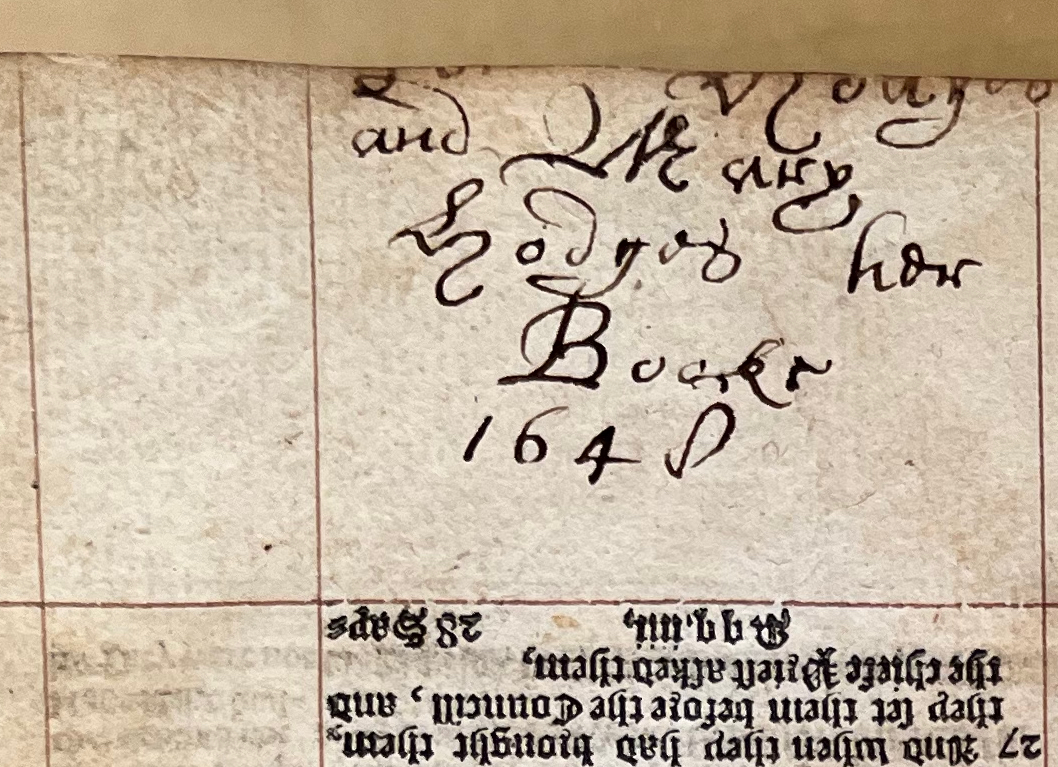 Hodges
and Mary
Hodges her
Booke
1648
27 And when they had brought them,
they set them before the Councill, and
the chiefe Priest asked them,
Qq.iiii. 28 Saya